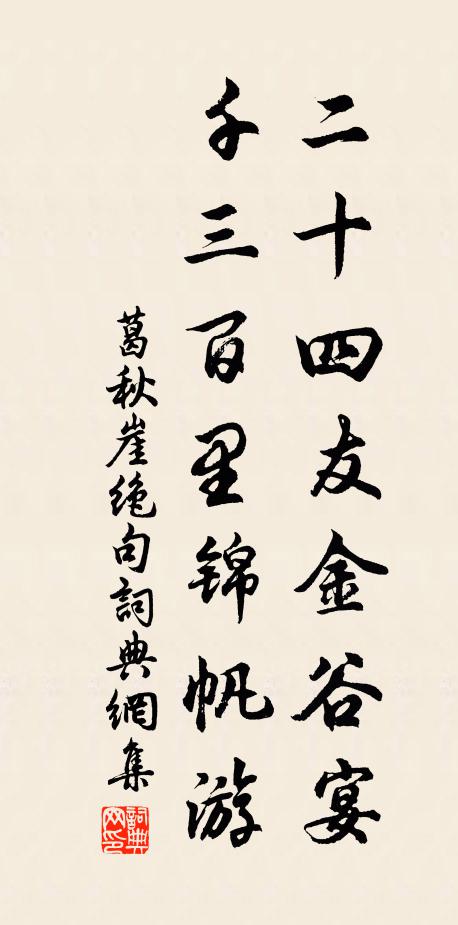 二十四友金谷宴
千三百里錦帆游
葛秋崖絶句詞典網集
詞典网印